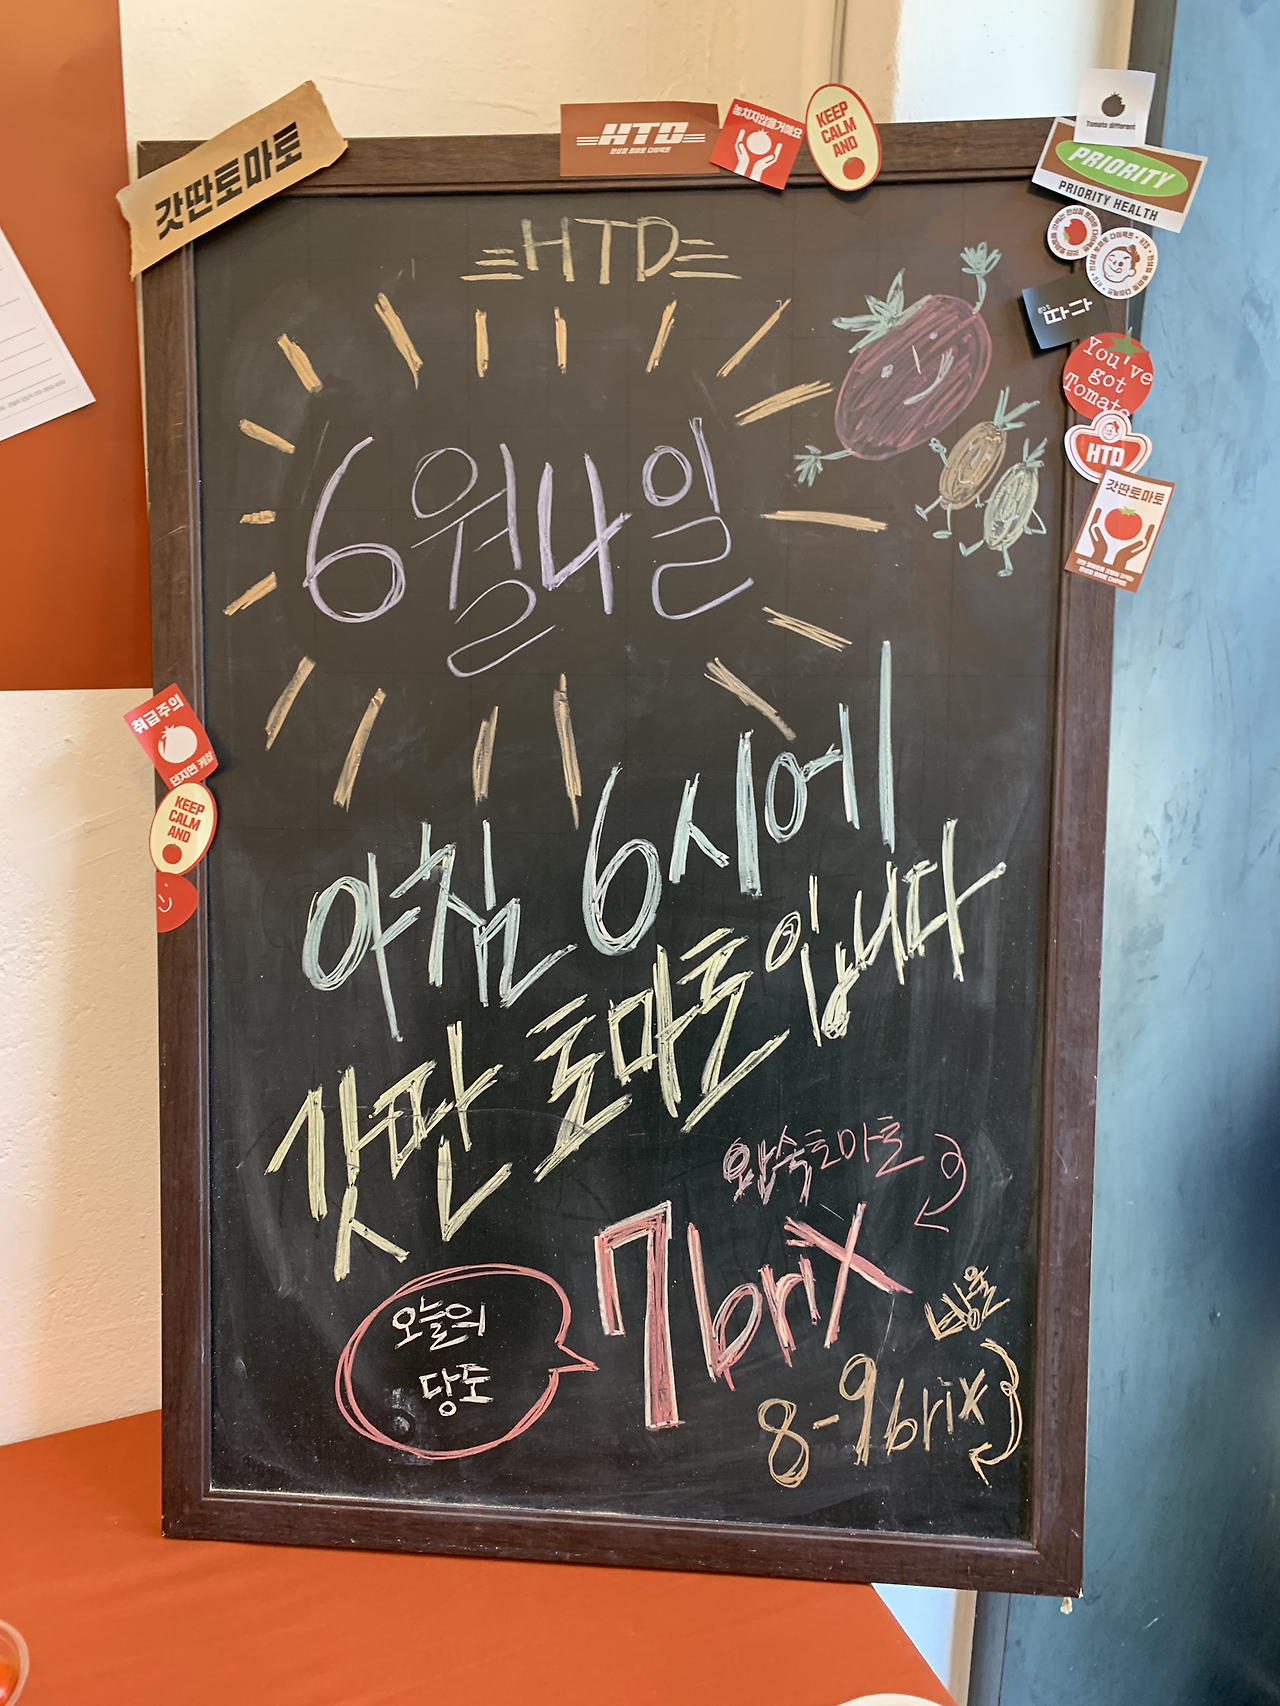 갓딴토마토
HTD
한상점 토마토 다이렉트
놓치지않을거에요
KEEP
CALM
AND
Tomato different
PRIORITY
PRIORITY HEALTH
HTD
6월4일
You've
got
Tomato
HTD
갓딴토마토
취급주의
던지면 케찹
KEEP
CALM
AND
아침 6시에
갓딴 토마토입니다
완숙토마토
7brix
오늘의
당도
방울
8-9brix